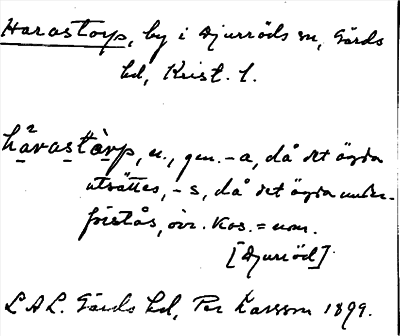 Harastorp, by i Djurröds sn, Gärds
hd, Krist. l.
håvastàrp, n., gen. -a, då det ägda
utsättes, -s, då det ägda under-
förstås, övr. kas. = nom.
[Djurröd].
LAL. Gärds hd, Per Larsson 1899.